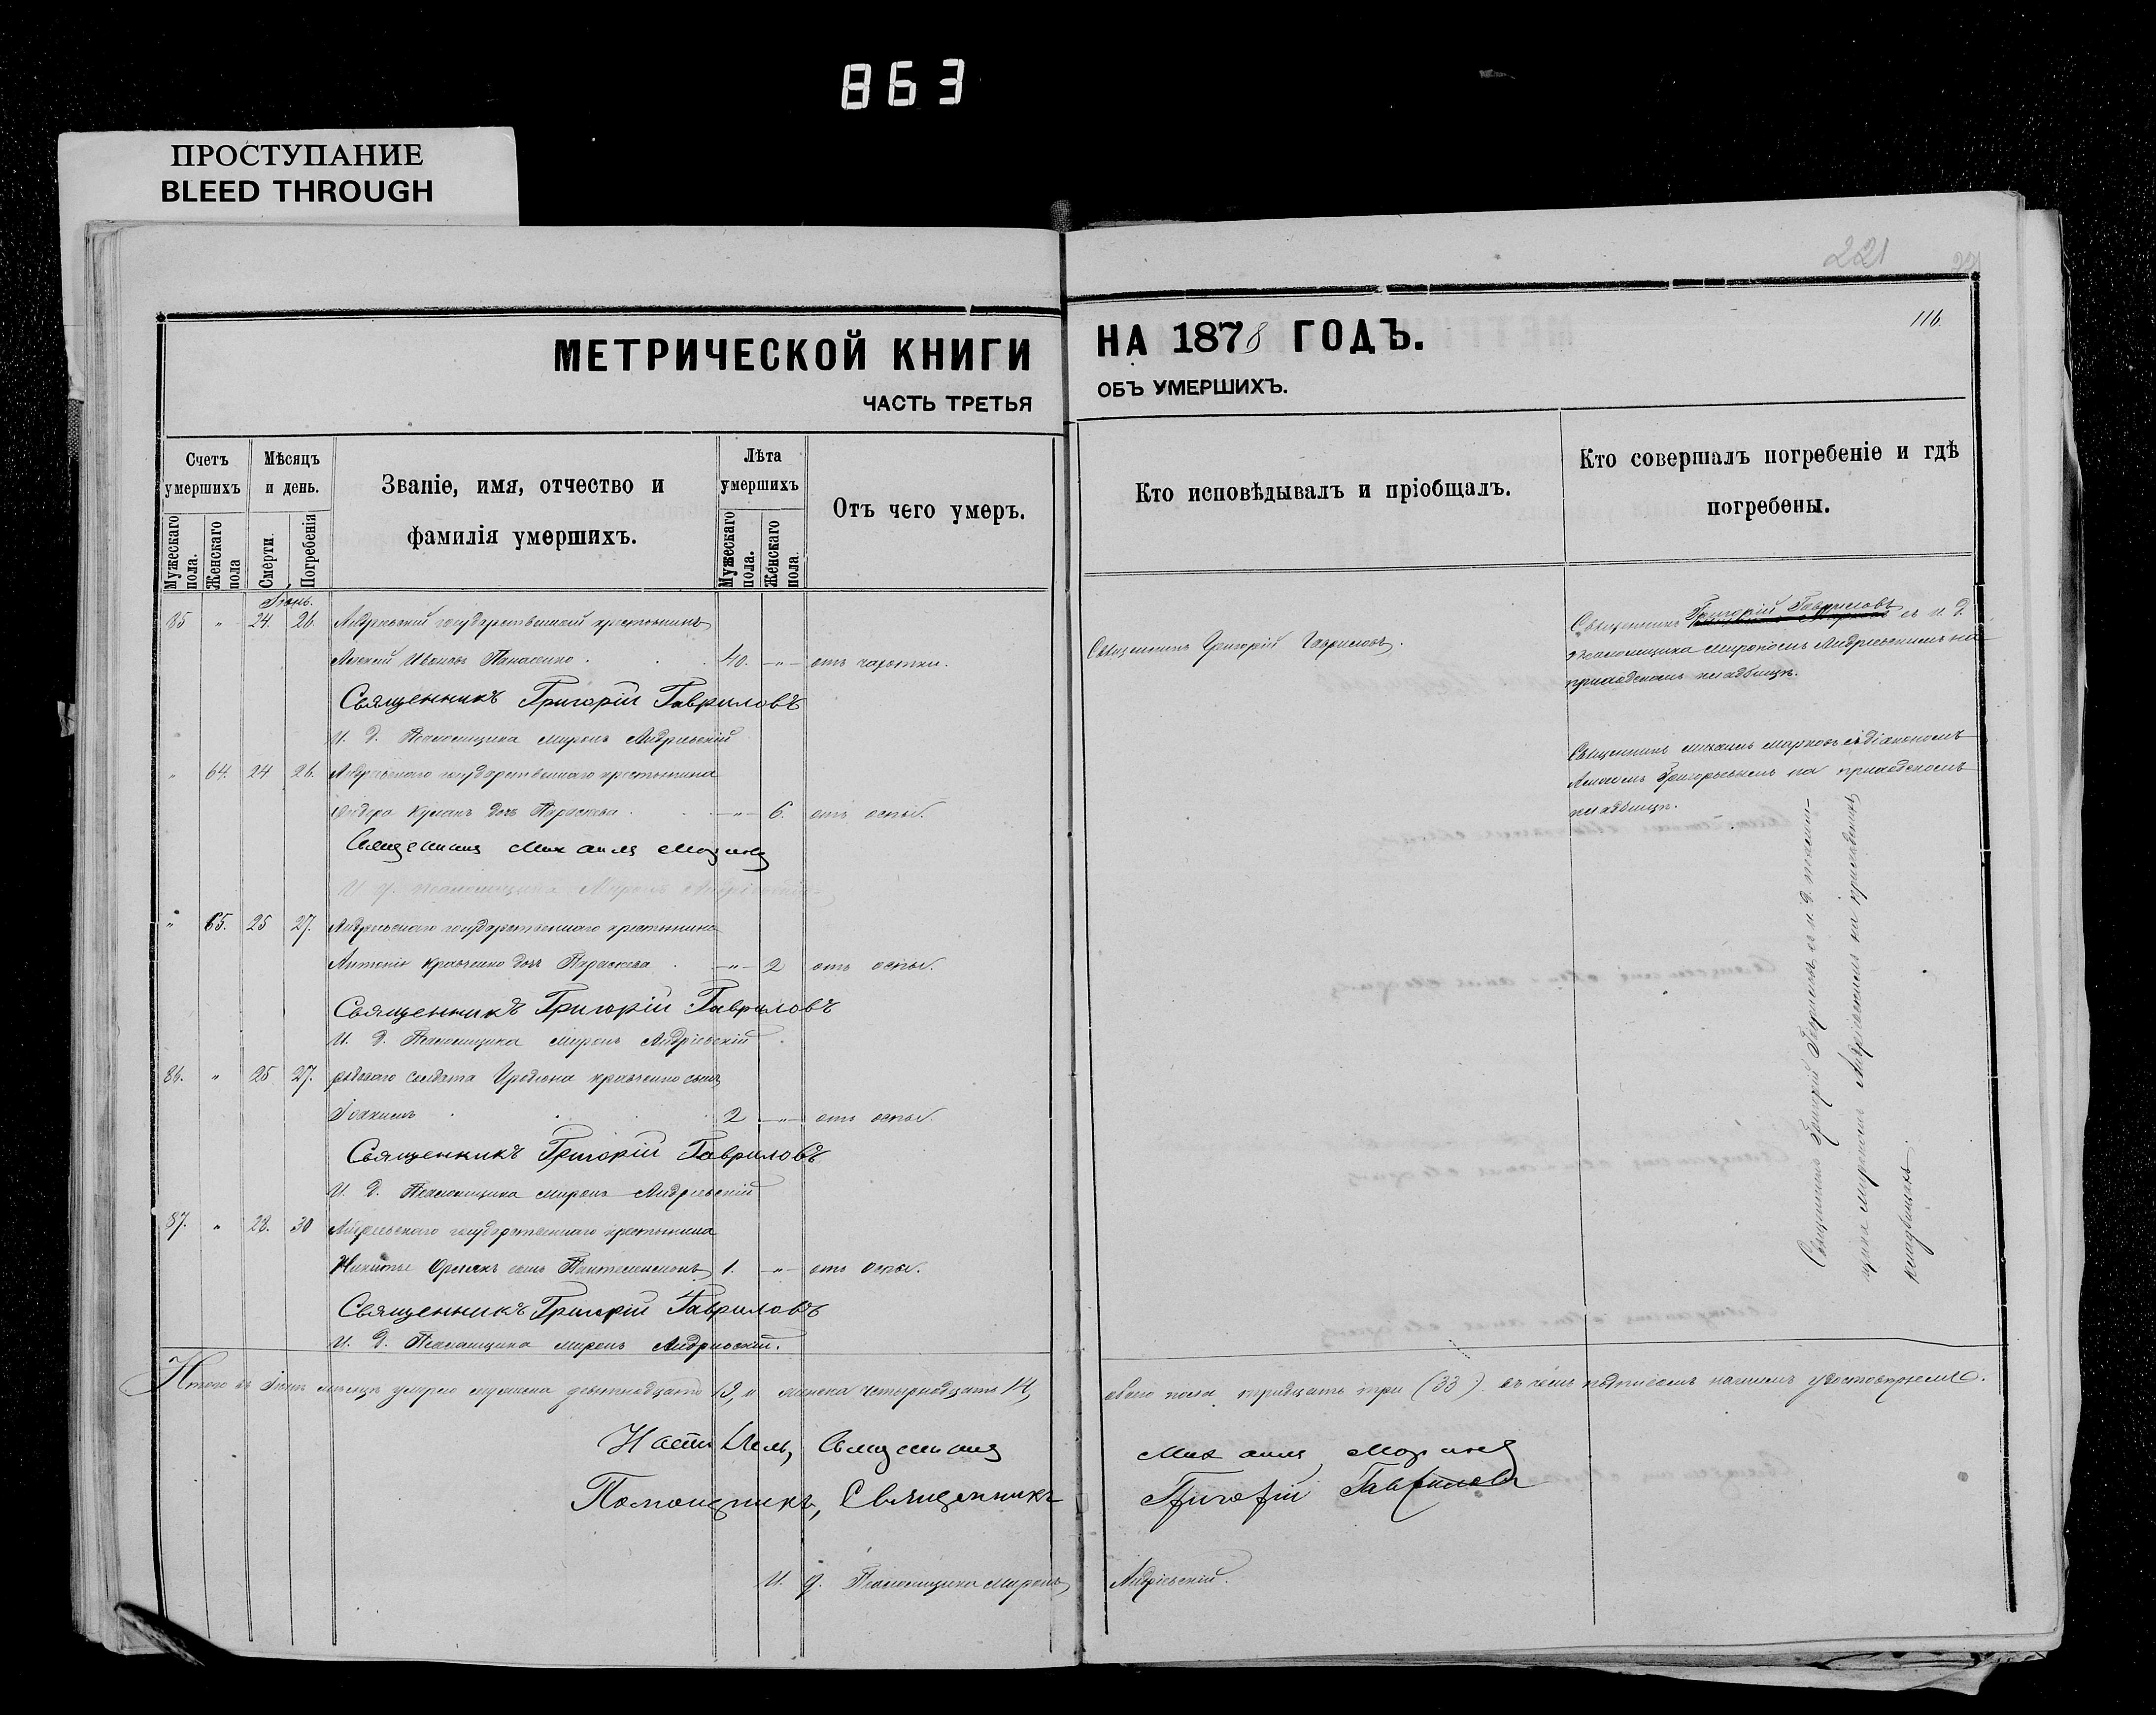 863
ПРОСТУПАНИЕ
BLEED THROUGH
221
116
МЕТРИЧЕСКОЙ КНИГИ
ЧАСТЬ ТРЕТЬЯ
НА 1878 ГОДЪ.
ОБЪ УМЕРШИХЪ.
Счетъ умершихъ
Мужескаго пола.
Женскаго пола
Мѣсяцъ и день.
Смерти.
Погребенія
Званіе, имя, отчество и
фамилія умершихъ.
Лѣта умершихъ
Мужескаго пола.
Женскаго пола.
Отъ чего умеръ.
Кто исповѣдывалъ и пріобщалъ.
Кто совершалъ погребеніе и гдѣ
погребены.
Іюнь.
85 " 24. 26. государственный крестьянинъ
Ивановъ Панасенко 40. " отъ чахотки.
Священникъ Григорій Гавриловъ.
Священникъ Григорій Гавриловъ съ и. д.
псаломщика Мирономъ Андріевскимъ на
приходскомъ кладбищѣ.
Священникъ Григорій Гавриловъ
И. д. Псаломщика Миронъ Андріевскій
" 64. 24 26. государственнаго крестьянина
дочь Параскева " 6. отъ оспы.
Священникъ Михаилъ съ діакономъ
Григорьевымъ на приходскомъ
кладбищѣ.
Священникъ Михаилъ
И. д. псаломщика Миронъ Андріевскій
" 65. 25 27. государственнаго крестьянина
Антонія Кравченко дочь Параскева " 2 отъ оспы.
Священникъ Григорій Гавриловъ
И. д. Псаломщика Миронъ Андріевскій
86. " 25 27. рядоваго солдата Иродіона Кравченко сынъ
Іоакимъ 2 " отъ оспы.
Священникъ Григорій Гавриловъ
И. д. Псаломщика Миронъ Андріевскій
87. " 28. 30 государственнаго крестьянина
Никиты сынъ Пантелеимонъ 1. " отъ оспы.
Священникъ Григорій Гавриловъ
И. д. Псаломщика Миронъ Андріевскій.
Священникъ Григорій Гавриловъ съ и. д. псалом-
щика Мирономъ Андріевскимъ на приходскомъ
кладбищѣ.
Итого въ Іюнѣ мѣсяцѣ умерло мужеска девятнадцать 19, и женска четырнадцать 14,
обоего пола тридцать три (33). въ чемъ подписомъ нашимъ удостовѣряемъ.
Настоятель, Священникъ Михаилъ
Помощникъ, Священникъ Григорій Гавриловъ
И. д. Псаломщика Миронъ Андріевскій.